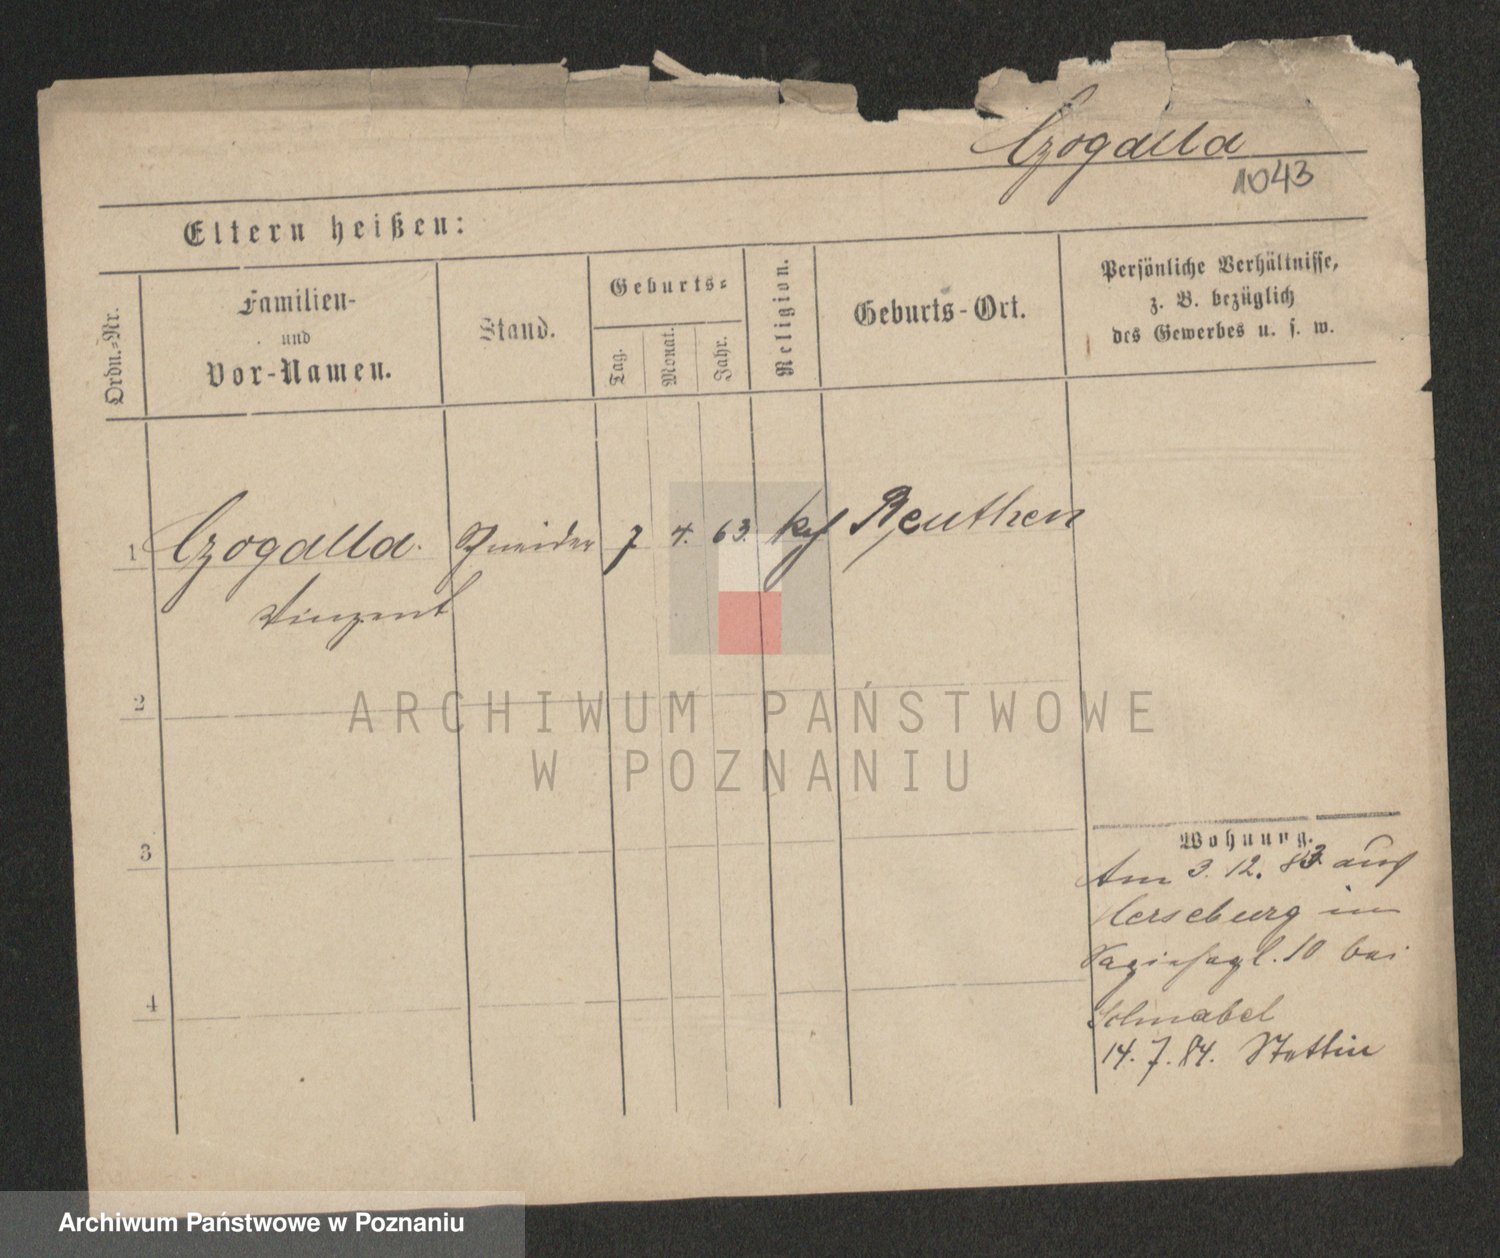 Czogalla
1043
Eltern heißen:
Ordn.-Nr.
Familien-
und
Vor-Namen.
Stand.
Geburts-
Tag.
Monat.
Jahr.
Religion.
Geburts-Ort.
Persönliche Verhältnisse,
z. B. bezüglich
des Gewerbes u. s. w.
1 Czogalla. Schneider 7 4. 63. kath Beuthen
Vinzent
2
3
4
Wohnung.
Am 3. 12. 83 aus
Merseburg in
10 bei
Schnabel
14. 7. 84. Stettin
ARCHIWUM PAŃSTWOWE
W POZNANIU
Archiwum Państwowe w Poznaniu